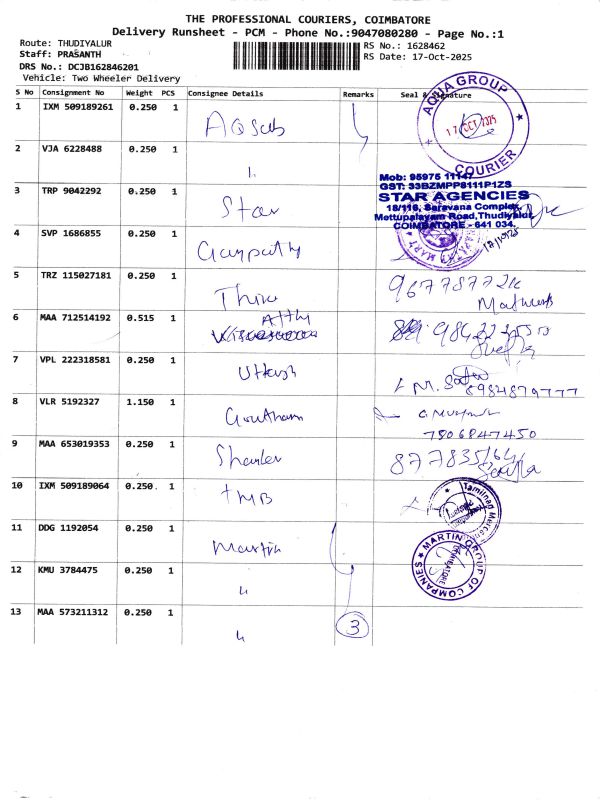 THE PROFESSIONAL COURIERS, COIMBATORE
Delivery Runsheet - PCM - Phone No.:9047080280 - Page No.:1
Route: THUDIYALUR
Staff: PRASANTH
DRS No.: DCJB162846201
Vehicle: Two Wheeler Delivery
RS No.: 1628462
RS Date: 17-Oct-2025
S No Consignment No Weight PCS Consignee Details Remarks Seal & Signature
1 IXM 509189261 0.250 1
AQUA GROUP
17 OCT 2025
COURIER
2 VJA 6228488 0.250 1
Mob: 95975 11147
GST: 33BZMPP8111P1ZS
STAR AGENCIES
18/116, Saravana Complex,
Mettupalayam Road, Thudiyalur,
COIMBATORE - 641 034.
3 TRP 9042292 0.250 1 Star
4 SVP 1686855 0.250 1 Ganpathy
17/10/25
5 TRZ 115027181 0.250 1
6 MAA 712514192 0.515 1
7 VPL 222318581 0.250 1
8984879777
8 VLR 5192327 1.150 1 Goutham
7806847450
9 MAA 653019353 0.250 1
10 IXM 509189064 0.250 1 TMB
11 DDG 1192054 0.250 1 Martin
MARTIN GROUP OF COMPANIES
COIMBATORE
12 KMU 3784475 0.250 1 "
13 MAA 573211312 0.250 1 "
3